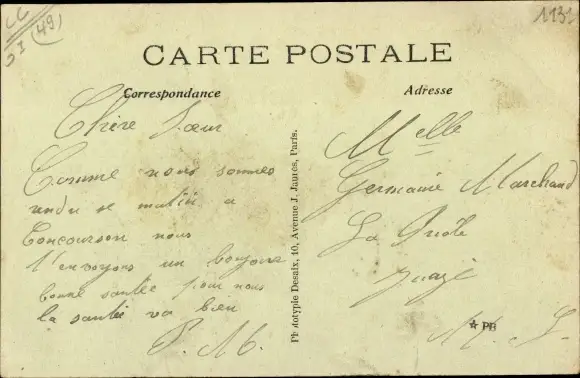 (49)
CARTE POSTALE
Correspondance
Adresse
Chère Sœur
Comme nous sommes
rendu se matin a
Concourson nous
t'envoyons un bonjour
bonne santée pour nous
la santé va bien
P. M.
Phototypie Desaix, 40, Avenue J. Jaurès, Paris.
Melle
Germaine Marchand
La
PB